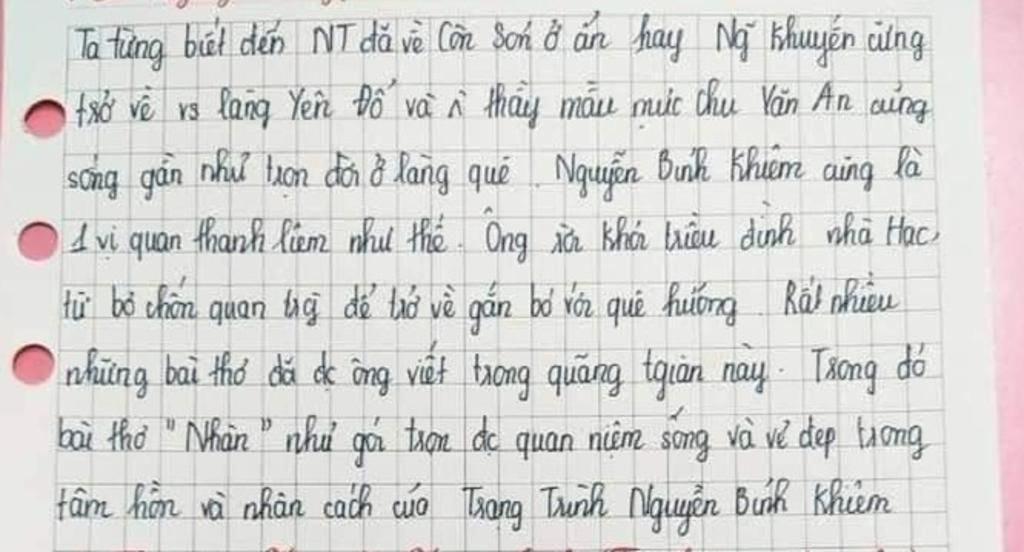 Ta từng biết đến NT đã về Côn Sơn ở ẩn hay Ng~ Khuyến cũng
trở về vs làng Yên Đổ và ì thầy mẫu mực Chu Văn An cũng
sống gần như trọn đời ở làng quê. Nguyễn Bỉnh Khiêm cũng là
1 vị quan thanh liêm như thế. Ông rời khỏi triều đình nhà Mạc,
từ bỏ chốn quan trg để trở về gắn bó với quê hương. Rất nhiều
những bài thơ đã đc ông viết trong quãng tgian này. Trong đó
bài thơ "Nhàn" như gói trọn đc quan niệm sống và vẻ đẹp trong
tâm hồn và nhân cách của Trạng Trình Nguyễn Bỉnh Khiêm